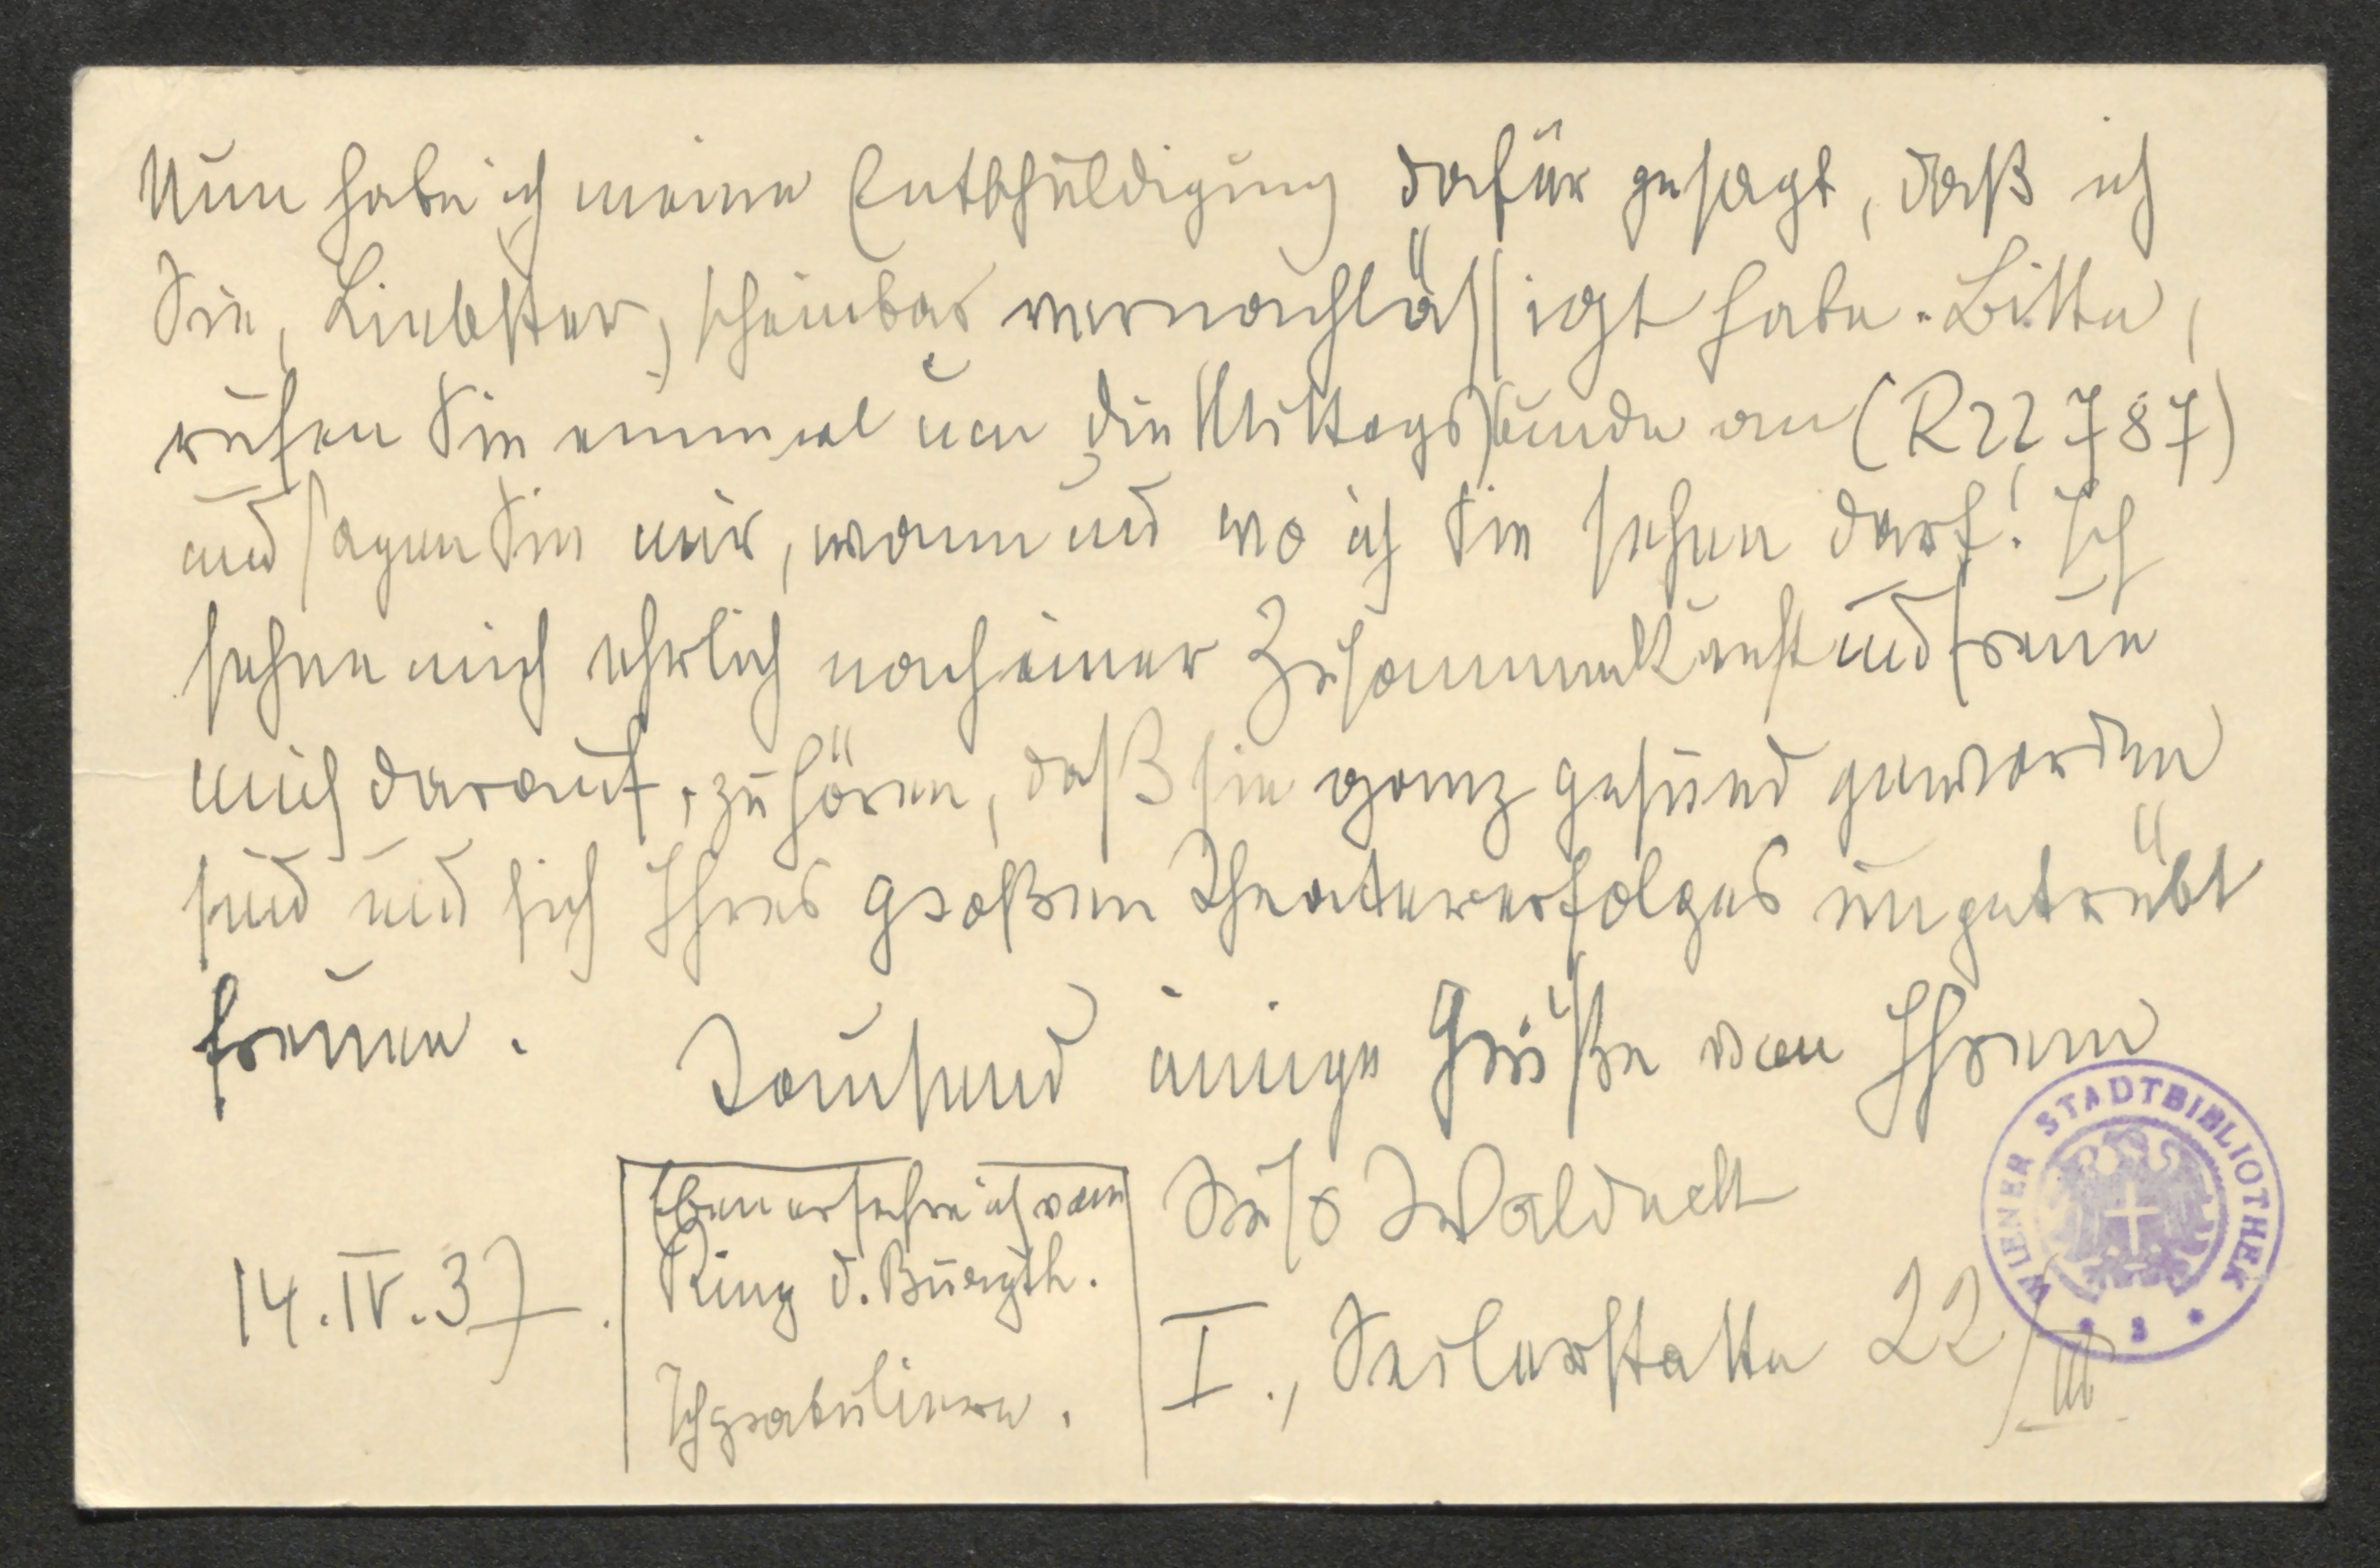 Nun habe ich meine Entschuldigung dafür gesagt, daß ich
Sie, Liebster, scheinbar vernachlässigt habe. Bitte,
rufen Sie einmal um die Mittagsstunde an (R22787)
und sagen Sie mir, wann und wo ich Sie sehen darf! Ich
sehne mich ehrlich nach einer Zusammenkunft und freue
mich darauf, zu hören, daß sie ganz gesund geworden
sind und sich Ihres großen Theatererfolges ungetrübt
freuen.
Tausend innige Grüße von Ihrem
14.IV.37.
Eben erfahre ich vom
Ring d. Burgth.
Ich gratuliere.
I., Seilerstatte 22/III.
WIENER STADTBIBLIOTHEK